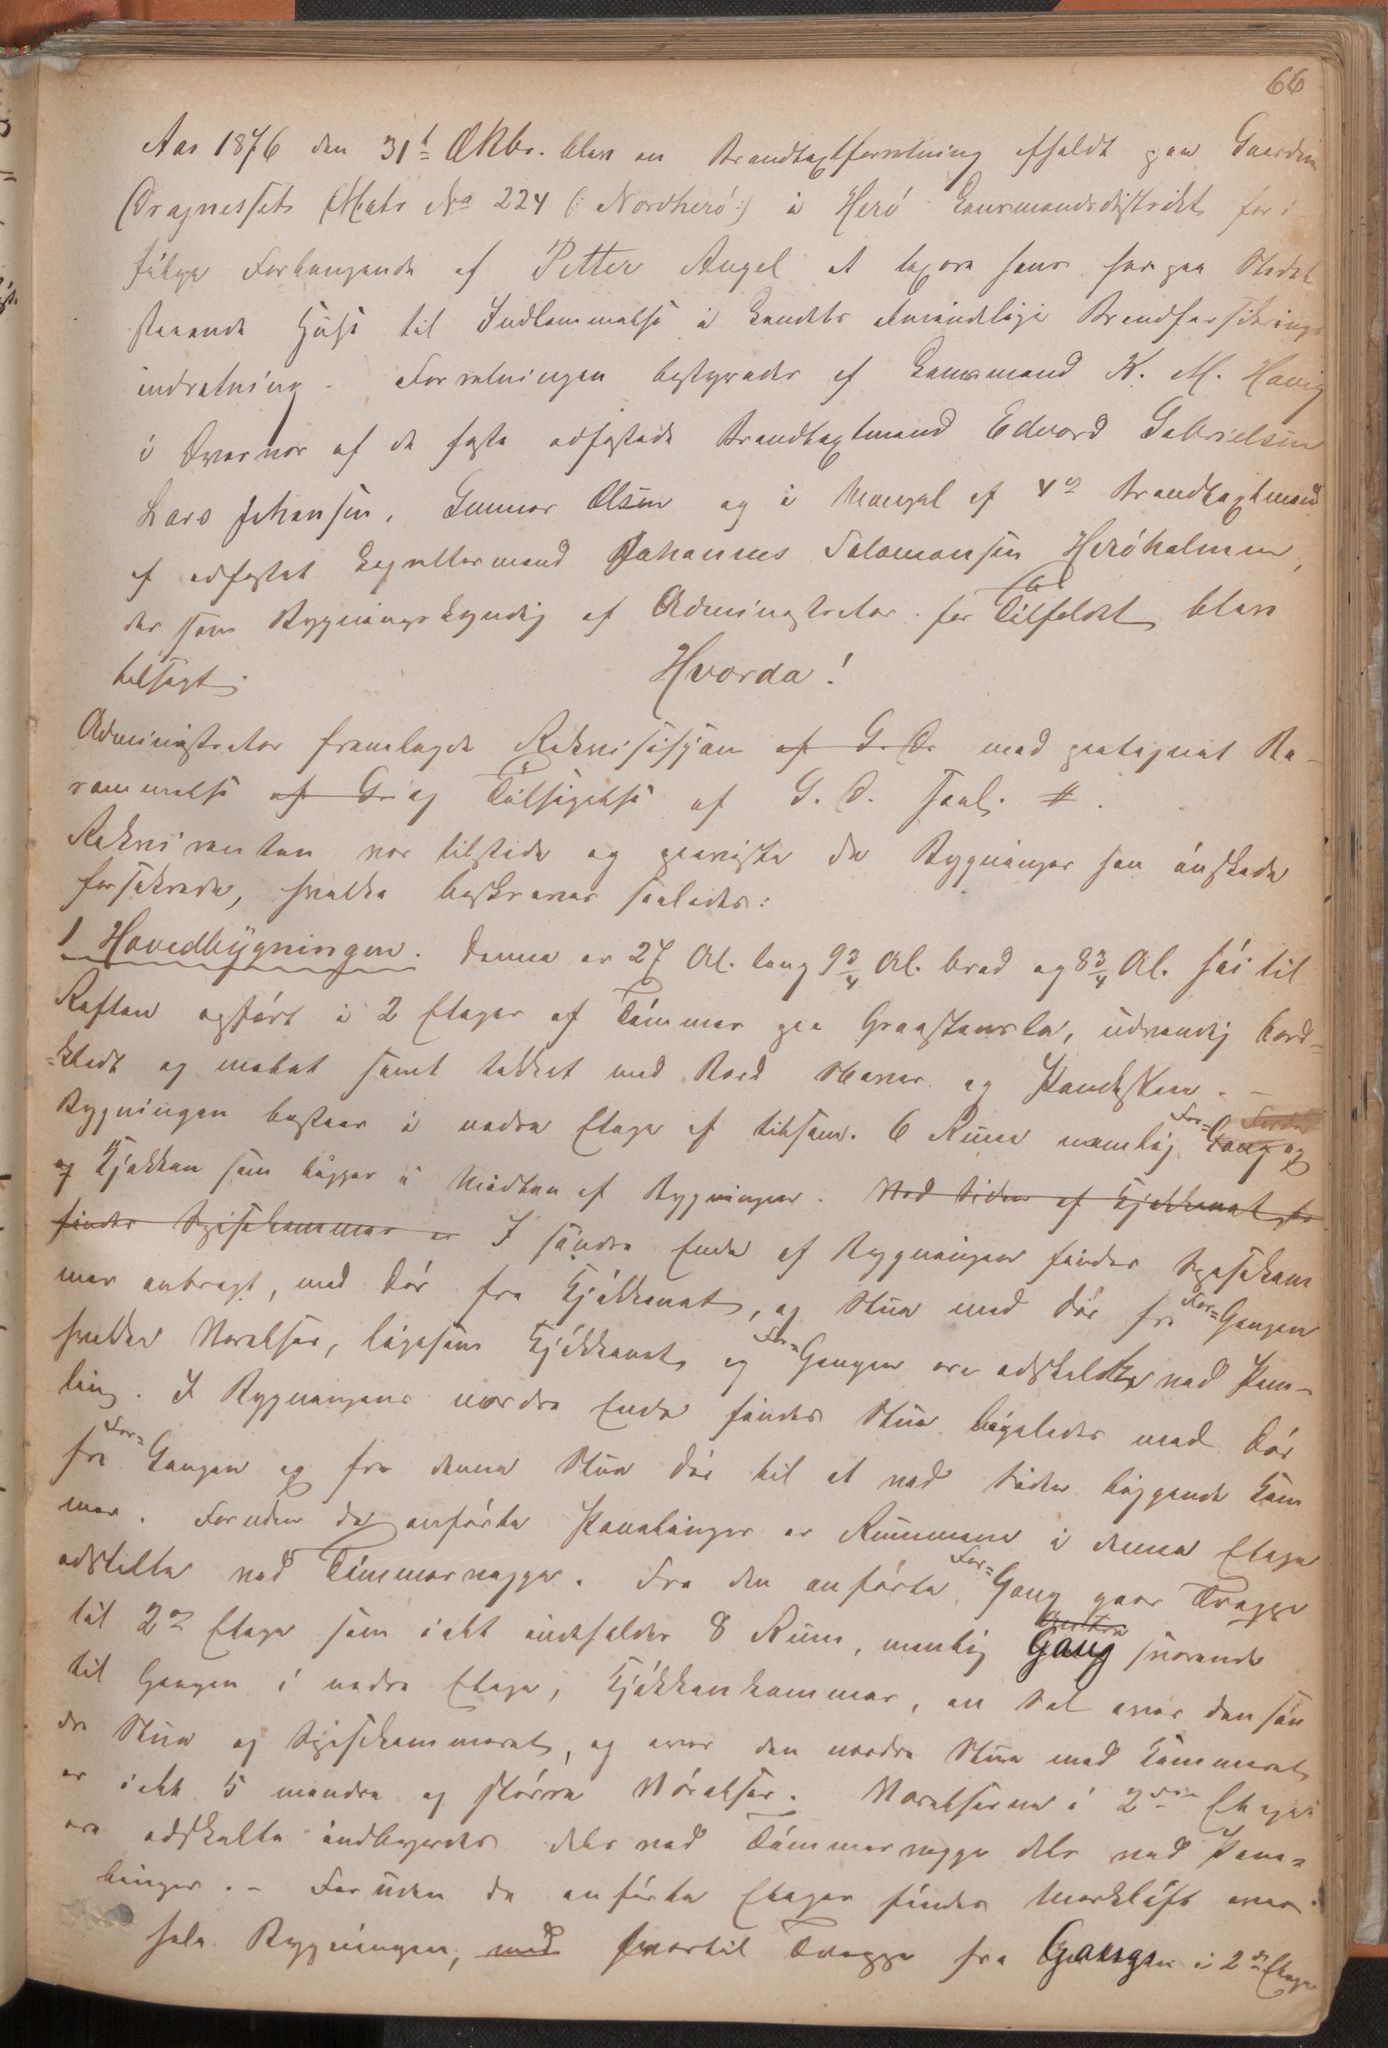 66
Aar 1876 den 31t Oktbr. blev en Brandtaxtforretning afholdt paa Gaarden
Dragnesset Matr No 224 (: Nordherø :) i Herø Lensmandsdistrikt for i
følge Forlangende af Petter Angel at taxere hans her paa Stedet
staaende Huse til Indlemmelse i Landets almindelige Brandforsikrings
indretning. Forretningen bestyredes af Lensmand K. M. Havig
i Overvær af de faste edfæstede Brandtaxtmænd Edvard Gabrielsen
Lars Johansen, Gunnar Olsen og i Mangel af 4de Brandtaxtmand
af edfæstet Lagrettemand Johannes Salomonsen Herøholmen,
der som Bygningskyndig af Administrator for Tilfældet blev
tilsagt.
Hvorda!
Administrator fremlagde Rekvisisjon af G. D. med paategnet Be-
rammelse af G. og Tilsigelse af G. D. saal. #.
Rekvirenten var tilstede og paaviste de Bygninger han ønskede
forsikrede, hvilke beskrives saaledes:
1 Hovedbygningen. Denne er 27 Al. lang 9 3/4 Al. bred og 8 3/4 Al. høi til
Raften opført i 2 Etager af Tømmer paa Graastensler, udvendig bord-
=klædt og malet samt tækket med Bord Næver og Pandesten. -
Bygningen bestaar i nedre Etage af tilsam. 6 Rum nemlig For= Gang og
og Kjøkken som ligger i Midten af Bygningen. Ved Siden af Kjøkkenet
findes Spisekammer I søndre Ende af Bygningen findes Spisekam
mer anbragt, med Dør fra Kjøkkenet, og Stue med Dør fra For= Gangen
hvilke Værelser, ligesom Kjøkkenet og For= Gangen ere adskilte ved Pane-
ling. I Bygningens nordre Ende findes Stue ligeledes med Dør
fra For= Gangen og fra denne Stue Dør til et ved Siden liggende Kam
mer. Foruden de anførte Panelinger er Rummene i denne Etage
adskilte ved Tømmervægge. Fra den anførte For= Gang gaar Trappe
til 2de Etage som i alt indeholder 8 Rum, nemlig Gang svarende
til Gangen i nedre Etage, Kjøkkenkammer, en Sal over den søn
dre Stue og Spisekammeret, og over den nordre Stue med Kammeret
er i alt 5 mindre og større Værelser. Værelserne i 2den Etage
ere adskilte indbyrdes dels ved Tømmervægge dels ved Pane-
linger. - Foruden de anførte Etager findes Mørkloft over
hele Bygningen, med hvortil Trappe fra Gangen i 2de Etage